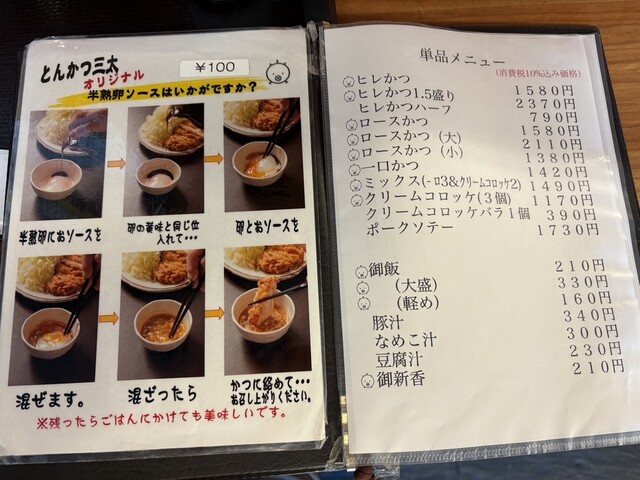 とんかつ三太
オリジナル
￥100
半熟卵ソースはいかがですか？
半熟卵におソースを
卵の黄味と同じ位
入れて・・・
卵とおソースを
混ぜます。
混ざったら
かつに絡めて・・・
お召し上がりください。
※残ったらごはんにかけても美味しいです。
単品メニュー
(消費税10%込み価格)
ヒレかつ 1580円
ヒレかつ1.5盛り 2370円
ヒレかつハーフ 790円
ロースかつ 1580円
ロースかつ（大） 2110円
ロースかつ（小） 1380円
一口かつ 1420円
ミックス(一ロ3&クリームコロッケ2) 1490円
クリームコロッケ(3個) 1170円
クリームコロッケバラ1個 390円
ポークソテー 1730円
御飯 210円
（大盛） 330円
（軽め） 160円
豚汁 340円
なめこ汁 300円
豆腐汁 230円
御新香 210円